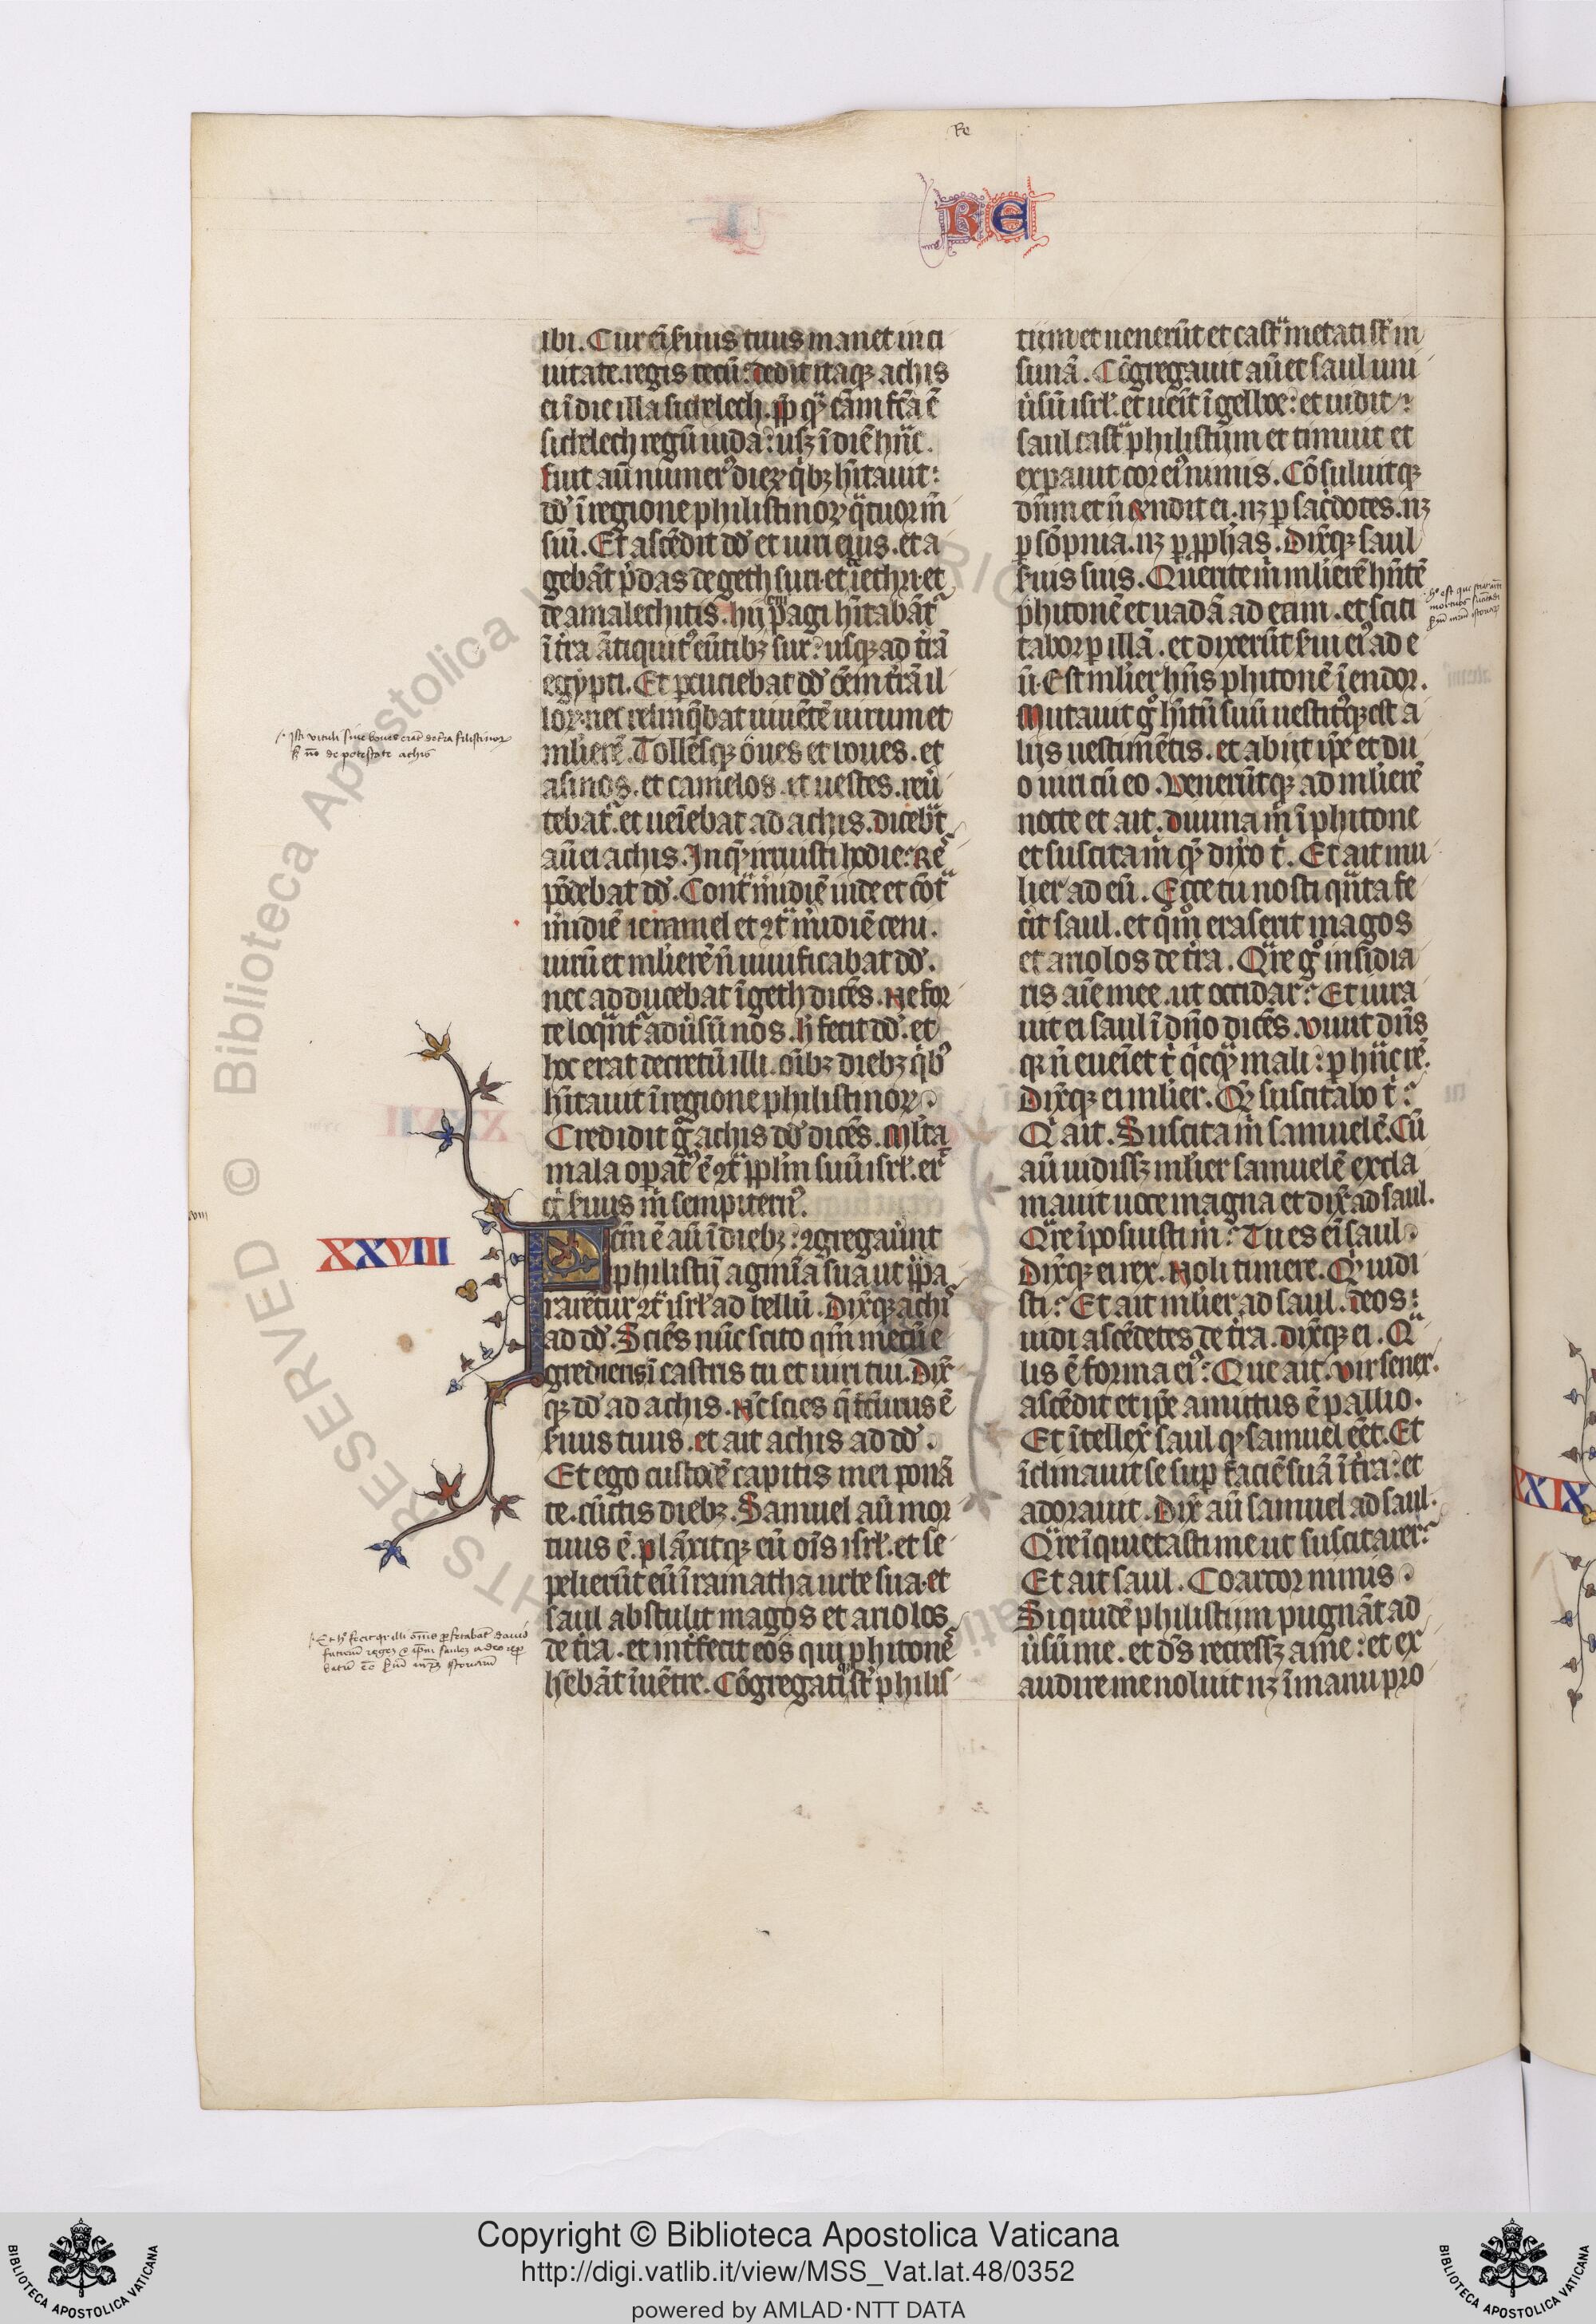 Re
RE
ibi. Cur eī ẜuus tuus manet in ci
uitate regis tecū: dedit itaqꝫ achis
ei ī die illa sichelech. ꝓp̄ qͣꝫ cām fc̄a ē
sichelech regū iuda: usꝫ ī diē hūc.
fuit aū numerꝰ dieꝝ qͥbꝫ hītauit:
dd̄ ī regione philistinoꝝ qͣtuor m̄
siū. Et ascēdit dd̄ et uiri ejus. et a
gebāt p̄das de geth suri. et īethri. et
de amalechitis. hij pagi hītabāt̄
eīn
ī tr̄a ātiquitꝰ eūtibꝫ sur: usqꝫ ad tr̄ā
egypti. Et ꝑcutiebat dd̄ oēm tr̄ā il
loꝝ. nec relinqͥbat uiuētē uirum et
mlīerē. Tollēsqꝫ oues et boues. et
asinos. et camelos. et uestes. reū
tebat. et ueīebat ad achis. dicebͣt
aū ei achis. In quē irruisti hodie: Rē
pōdebat dd̄. Contͣ m̄idiē iude et cōtͣ
m̄idiē ieramel et ꝯtͣ m̄idiē ceni.
uirū et mlīerē n̄ uiuificabat dd̄.
nec adducebat ī geth dicēs. Ne for
te loqͣnt̄ adūsū nos. h̄ fecit dd̄. et
hoc erat decretū illi. oībꝫ diebꝫ qͥbꝰ
hītauit ī regione philistinoꝝ.
Credidit gͦ achis dd̄ dicēs. Ml̄ta
mala oꝑatꝰ ē ꝯtͣ ppl̄m suū isrl̄. erͥ
gͦ ẜuus m̄ sempiternꝰ.
XXVIII
Fctm̄ ē aū ī diebꝫ: ꝯgregaūnt
philistij agmīa sua ut p̄pa
rarētur ꝯtͣ isrl̄ ad bellū. Dix̄qꝫ achis
ad dd̄. Sciēs nūc scito qm̄ mecū e
gredieris ī castris tu et uiri tui. Dix̄
qꝫ dd̄ ad achis. Nūc scies q̄ fcūrus ē
ẜuus tuus. et ait achis ad dd̄.
Et ego custodē capitis mei ponā
te. cūctis diebꝫ. Samuel aū mor
tuus ē. plāxitqꝫ eū oīs isrl̄. et se
pelierūt eū ī ramatha urbe sua. et
saul abstulit magos et ariolos
de tr̄a. et int̄fecit eos qui phitonē
hebāt ī uētre. Cōgregatiqꝫ st̄ philis
tiim et uenerūt et castͣ metati st̄ in
sunā. Cōgregauit aū et saul uni
ūsū isrl̄. et uēit ī gelboe: et uidit
saul castͣ philistijm et timuit et
expauit cor eiꝰ nimis. Cōsuluitqꝫ
dn̄m et n̄ rn̄dit ei. nꝫ ꝑ sac̄dotes. nꝫ
ꝑ sōpnia. nꝫ ꝑ pphās. Dix̄qꝫ saul
ẜuis suis. Querite m̄ mlīerē hn̄tē
phitonē et uadā ad eam. et sciti
tabor ꝑ illā. et dixerūt ẜui eiꝰ ad e
ū. Est mlīer hn̄s phitonē ī endor.
Mutauit gͦ hītū suū uestitꝰqꝫ est a
lijs uestimētis. et abijt ip̄e et du
o uiri cū eo. Venerūtqꝫ ad mlīerē
nocte et ait. Diuina m̄ ī phitone
et suscita m̄ quē dixo t̄. Et ait mu
lier ad eū. Ecce tu nosti qͣnta fe
cit saul. et qͦm̄ eraserit magos
et ariolos de tr̄a. Qͣre gͦ insidia
ris aīe mee. ut occidar: Et iura
uit ei saul ī dn̄o dicēs. Viuit dn̄s
qꝫ n̄ eueīet t̄ qͥcqͣ mali: ꝓ hāc rē.
Dix̄qꝫ ei mlīer. Quē suscitabo t̄:
Qͥ ait. Suscita m̄ samuelē. Cū
aū uidissꝫ mlīer samuelē excla
mauit uoce magna et dix̄ ad saul.
Qͣre īposuisti m̄: Tu es eī saul.
Dix̄qꝫ ei rex. Noli timere. Qͥd uidi
sti: Et ait mlīer ad saul. Deos:
uidi ascēdētes de tr̄a. Dix̄qꝫ ei. Qͣ
lis ē forma eiꝰ: Que ait. Vir senex.
ascēdit et ip̄e amictus ē pallio.
Et ītellex̄ saul qꝫ samuel eēt. Et
īclinauit se suꝑ faciē suā ī tr̄a: et
adorauit. Dix̄ aū samuel ad saul.
Qͣre īquietasti me ut suscitarer:
Et ait saul. Coartor nimis.
Siquidē philistijm pugnāt ad
ūsū me. et ds̄ recessꝫ a me: et ex
audire me noluit nꝫ ī manu pro
Isti vituli sive boves erāt de tr̄a filistinoꝝ
ẜ nō de potestate achis
XXIX
Copyright © Biblioteca Apostolica Vaticana
http://digi.vatlib.it/view/MSS_Vat.lat.48/0352
powered by AMLAD·NTT DATA
BIBLIOTECA APOSTOLICA VATICANA
BIBLIOTECA APOSTOLICA VATICANA